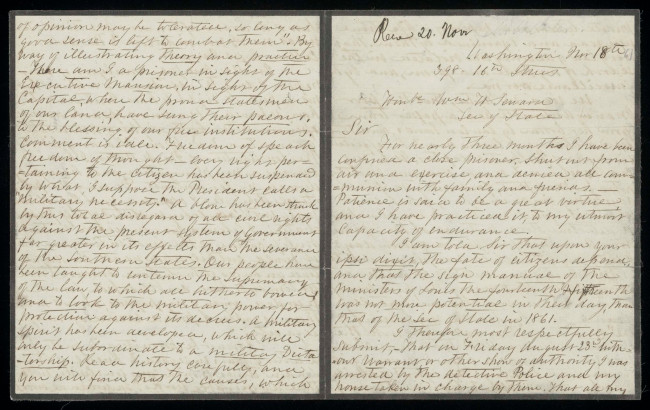 of opinion may be tolerated, so long as
good sense is left to combat them" & By
way of illustrating theory and practice
- Here am I a prisoner in sight of the
Executive Mansion, in sight of the
Capitol, where the proud statesmen
of our land, have sung their paeons,
to the blessing of our free institutions.
Comment is idle. Freedom of speech
freedom of thought - every right per-
=taining to the citizen has been suspended
by what, I suppose the President calls a
"military necessity." A blow has been struck
by this total disregard of all civil rights
against the present system of Government
far greater in its effects than the severance
of the Southern States. Our people have
been taught to contemn the supremacy
of the law to which all hitherto bowed
and to look to the military power for
protection against its decrees. A military
spirit has been developed, which will
only be subordinate to a military Dicta
-torship. Read history carefully, and
you will find that the causes, which
Recd 20. Nov
Washington Nov 18th
398. 16th Street
Honble Wm H Seward
Secy of State
Sir
For nearly three months I have been
confined a close prisoner, shut out from
air and exercise and denied all com
=munion with family and friends. -
Patience is said to be a great virtue
and I have practiced it to my utmost
capacity of endurance.
I am told, Sir that upon your
ipse dixit, the fate of citizens depends,
and that the sign manual of the
ministers of Louis the fourteenth & fifteenth
was not more potential in their day, than
that of the Sec of State in 1861.
I therefore most respectfully
submit, that on Friday August 23d with-
-out warrant or other show of authority, I was
arrested by the detective Police and my
house taken in charge by them. That all my